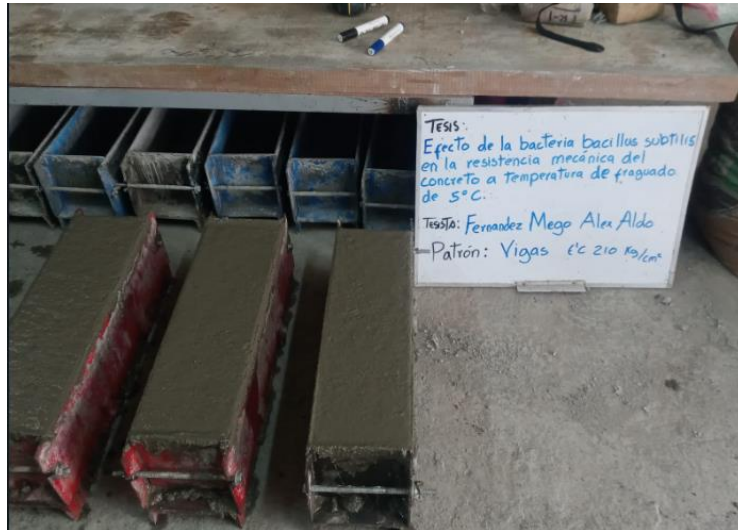 TESIS:
Efecto de la bacteria bacillus subtilis
en la resistencia mecánica del
concreto a temperatura de fraguado
de 5°C.
TESISTA: Fernandez Mego Alex Aldo
Patrón: Vigas f'c 210 Kg/cm²